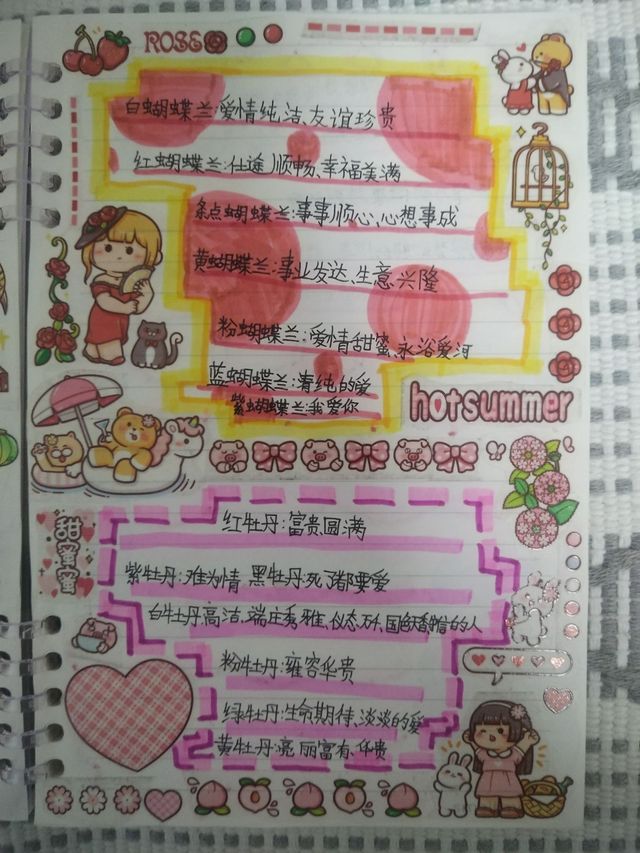 ROSE
白蝴蝶兰:爱情纯洁、友谊珍贵
红蝴蝶兰:仕途顺畅、幸福美满
条点蝴蝶兰:事事顺心、心想事成
黄蝴蝶兰:事业发达、生意兴隆
粉蝴蝶兰:爱情甜蜜、永浴爱河
蓝蝴蝶兰:清纯的爱
紫蝴蝶兰:我爱你
hotsummer
红牡丹:富贵圆满
甜蜜蜜
紫牡丹:难为情 黑牡丹:死了都要爱
白牡丹高洁、端庄秀雅、仪态万千、国色天香 的人
粉牡丹:雍容华贵
绿牡丹:生命期待、淡淡的爱
黄牡丹:亮丽富有、华贵